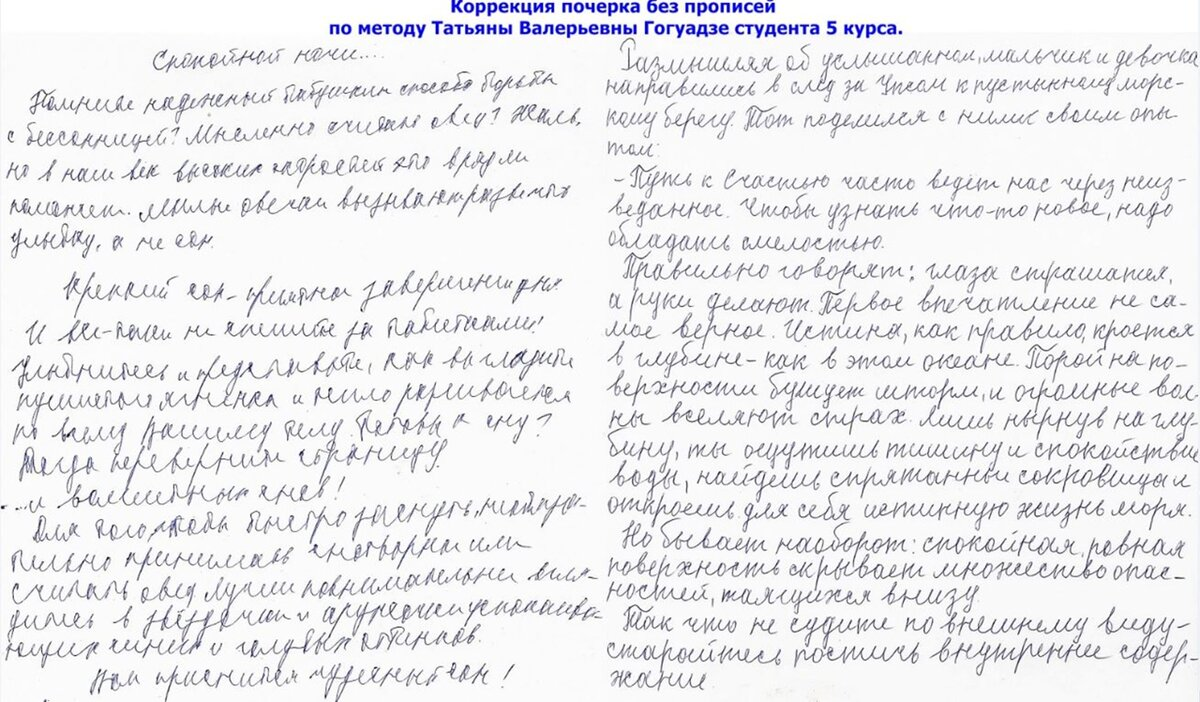 Коррекция почерка без прописей
по методу Татьяны Валерьевны Гогуадзе студента 5 курса.
Спокойной ночи....
Помните надежный бабушкин способ борьбы
с бессонницей? Мысленно считать овец? Жаль,
но в наш век высоких скоростей это врядли
поможет. Милые овечки вызывают разве что
улыбку, а не сон.
Крепкий сон - приятное завершение дня
И все-таки не спешите за таблетками!
Улыбнитесь и представьте, как вы гладите
пушистого ягненка и тепло разливается
по всему вашему телу. Готовы к сну?
Тогда переверните страницу.
... и волшебных снов!
Для того, чтобы быстро заснуть, необяза-
тельно принимать снотворный или
считать овец Лучше повнимательнее вгля-
дитесь в звёздочки и успокаива-
ющих синих и голубых оттенков.
Вам приснится чудесный сон!
Размышляя об услышанном, мальчик и девочка
направились в след за Уксом к пустынному морс-
кому берегу Тот поделился с ними своим опы
том:
- Путь к Счастью часто ведет нас через неиз-
веданное. Чтобы узнать что-то новое, надо
обладать смелостью.
Правильно говорят: глаза страшатся,
а руки делают. Первое впечатление не са-
мое верное. Истина, как правило, кроется
в глубине - как в этом океане. Порой на по-
верхности бушует шторм, и огромные вол-
ны вселяют страх. Лишь нырнув на глу-
бину, ты ощутишь тишину и спокойствие
воды, найдешь спрятанные сокровища и
откроешь для себя истинную жизнь моря.
Но бывает наоборот: спокойная, ровная
поверхность скрывает множество опас-
ностей, таящихся внизу
Так что не судите по внешнему виду -
старайтесь постичь внутреннее содер-
жание.